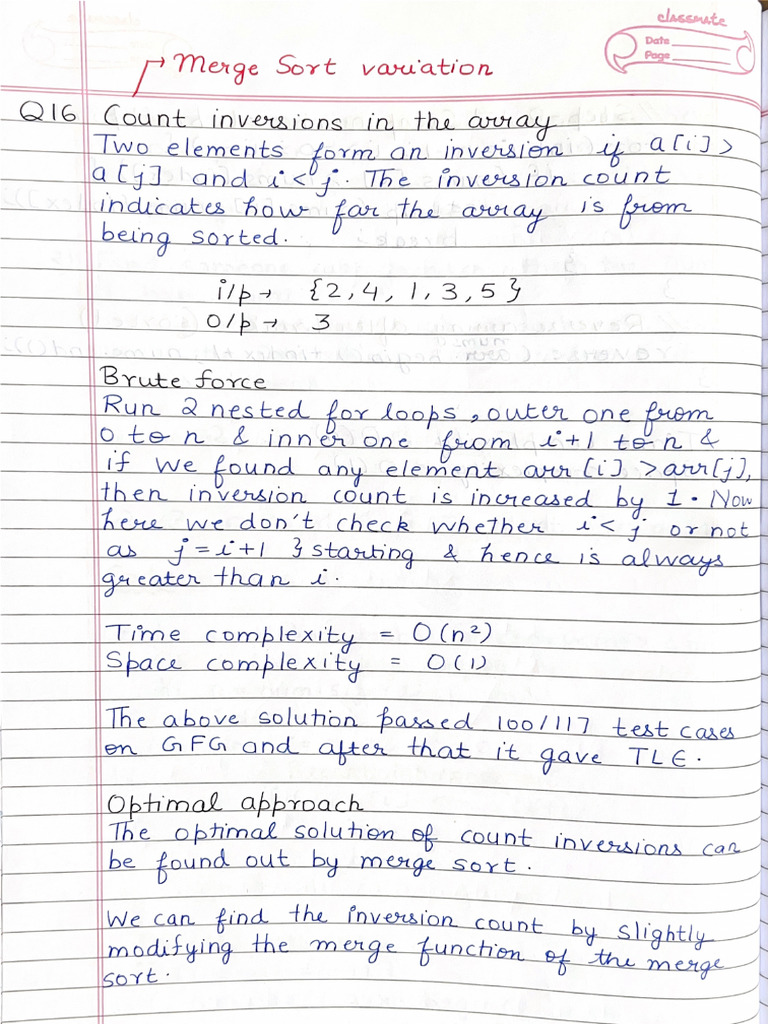 classmate
Date
Page
↱ Merge Sort variation
Q16 Count inversions in the array
Two elements form an inversion if a[i] >
a[j] and i < j. The inversion count
indicates how far the array is from
being sorted.
i/p → {2, 4, 1, 3, 5}
O/p → 3
Brute force
Run 2 nested for loops, outer one from
0 to n & inner one from i+1 to n &
if we found any element arr[i] > arr[j],
then inversion count is increased by 1. Now
here we don't check whether i < j or not
as j = i+1 } starting & hence is always
greater than i.
Time complexity = O(n²)
Space complexity = O(1)
The above solution passed 100/117 test cases
on GFG and after that it gave TLE.
Optimal approach
The optimal solution of count inversions can
be found out by merge sort.
We can find the inversion count by slightly
modifying the merge function of the merge
sort.